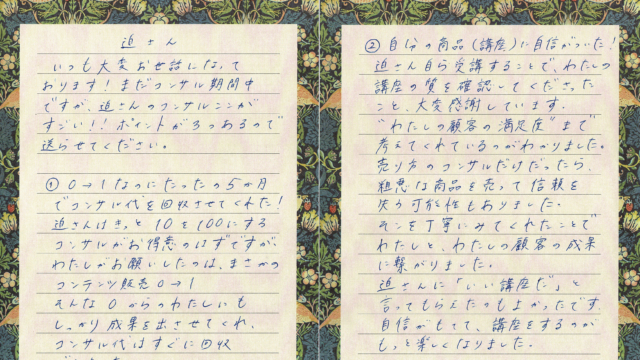 迫さん
いつも大変お世話になって
おります！まだコンサル期間中
ですが、迫さんのコンサルここが
すごい！！ポイントが3つあるので
送らせてください。
① 0→1なのにたったの5か月
でコンサル代を回収させてくれた！
迫さんはきっと10を100にする
コンサルがお得意のはずですが、
わたしがお願いしたのは、まさかの
コンテンツ販売0→1
そんな0からのわたしにも
しっかり成果を出させてくれ、
コンサル代はすぐに回収
② 自分の商品（講座）に自信がついた！
迫さん自ら受講することで、わたしの
講座の質を確認してくださった
こと、大変感謝しています。
"わたしの顧客の満足度"まで
考えてくれているのがわかりました。
売り方のコンサルだけだったら、
粗悪な商品を売って信頼を
失う可能性もありました。
そこを丁寧にみてくれたことで
わたしと、わたしの顧客の成果
に繋がりました。
迫さんに「いい講座だ」と
言ってもらえたのもよかったです。
自信がもてて、講座をするのが
もっと楽しくなりました。